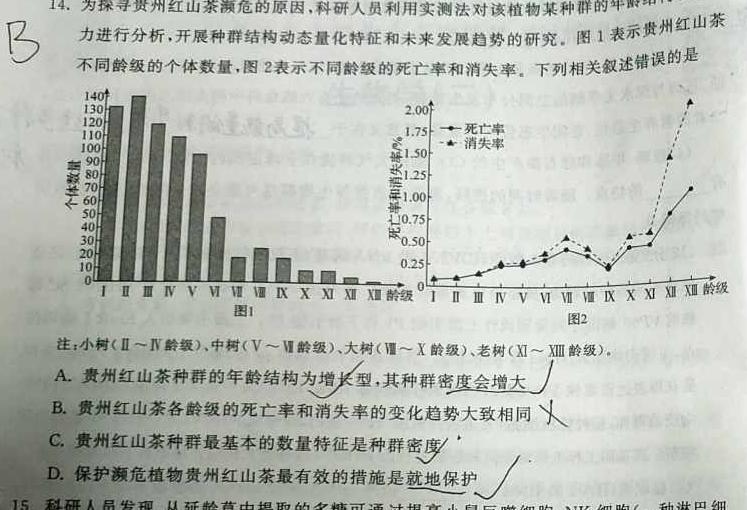 B
14. 为探寻贵州红山茶濒危的原因,科研人员利用实测法对该植物某种群的年龄结
力进行分析,开展种群结构动态量化特征和未来发展趋势的研究。图 1 表示贵州红山茶
不同龄级的个体数量,图 2表示不同龄级的死亡率和消失率。下列相关叙述错误的是
个体数量
140
130
120
110
100
90
80
70
60
50
40
30
20
10
0
Ⅰ Ⅱ Ⅲ Ⅳ Ⅴ Ⅵ Ⅶ Ⅷ Ⅸ Ⅹ Ⅺ Ⅻ XIII 龄级
图1
死亡率和消失率/%
2.00
1.75
1.50
1.25
1.00
0.75
0.50
0.25
0
死亡率
消失率
Ⅰ Ⅱ Ⅲ Ⅳ Ⅴ Ⅵ Ⅶ Ⅷ Ⅸ Ⅹ Ⅺ Ⅻ XIII 龄级
图2
注:小树(Ⅱ~Ⅳ龄级)、中树(Ⅴ~Ⅶ龄级)、大树(Ⅷ~Ⅹ龄级)、老树(Ⅺ~XIII龄级)。
A. 贵州红山茶种群的年龄结构为增长型,其种群密度会增大
B. 贵州红山茶各龄级的死亡率和消失率的变化趋势大致相同
C. 贵州红山茶种群最基本的数量特征是种群密度
D. 保护濒危植物贵州红山茶最有效的措施是就地保护
15. 科研人员发现,从延龄草中提取的多糖可通过提高小鼠巨噬细胞、NK细胞(一种淋巴细